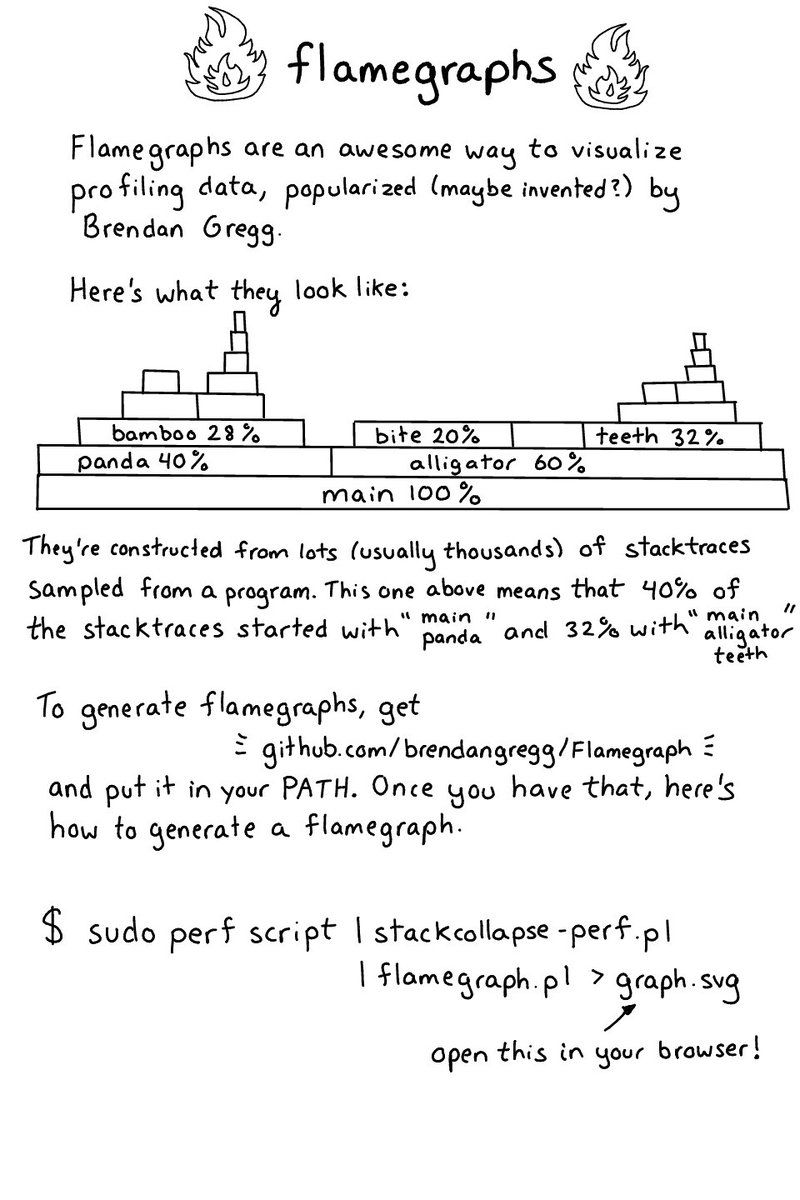 flamegraphs
Flamegraphs are an awesome way to visualize
profiling data, popularized (maybe invented?) by
Brendan Gregg.
Here's what they look like:
bamboo 28% bite 20% teeth 32%
panda 40% alligator 60%
main 100%
They're constructed from lots (usually thousands) of stacktraces
sampled from a program. This one above means that 40% of
the stacktraces started with "main panda" and 32% with "main alligator teeth"
To generate flamegraphs, get
github.com/brendangregg/Flamegraph
and put it in your PATH. Once you have that, here's
how to generate a flamegraph.
$ sudo perf script | stackcollapse-perf.pl
| flamegraph.pl > graph.svg
open this in your browser!